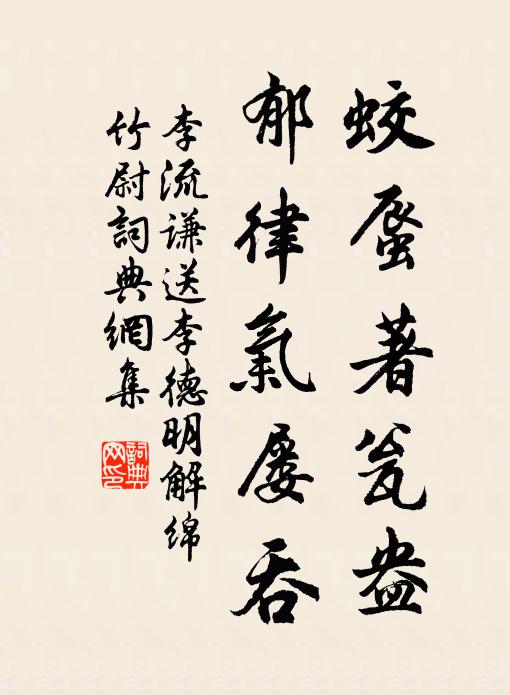 蛟蜃著瓮盎
郁律氣屡吞
李流谦送李德明解绵
竹尉詞典網集
詞典網印